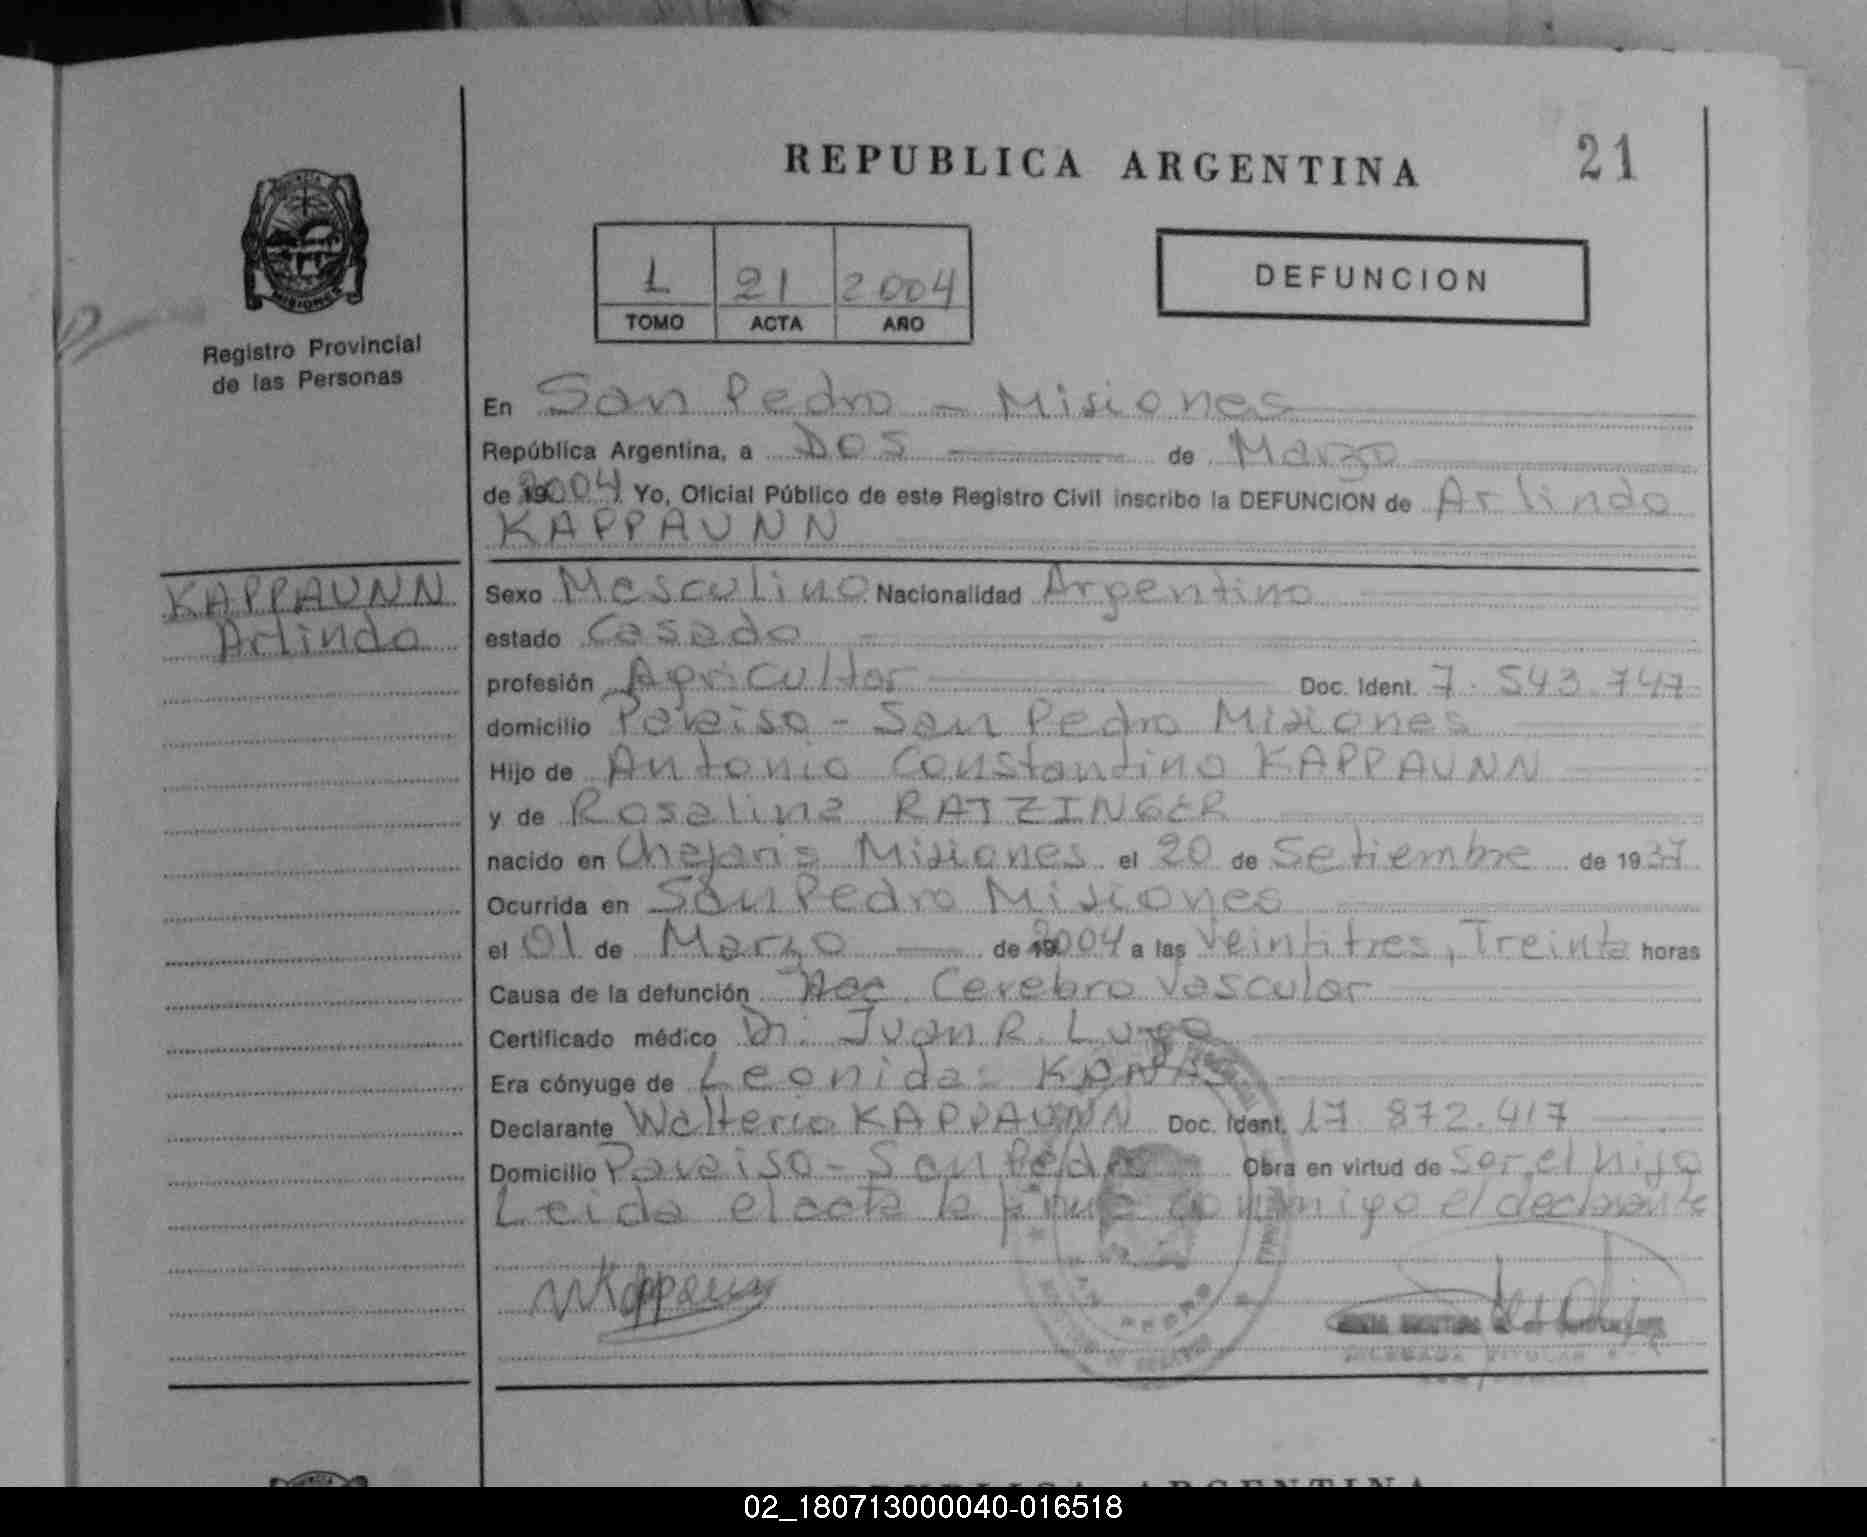 REPUBLICA ARGENTINA
21
Registro Provincial
de las Personas
1 21 2004
TOMO ACTA AÑO
DEFUNCION
En San Pedro - Misiones
República Argentina, a Dos de Marzo
de 2004 Yo, Oficial Público de este Registro Civil inscribo la DEFUNCION de Arlindo
KAPPAUNN
KAPPAUNN
Arlindo
Sexo Masculino Nacionalidad Argentino
estado Casado
profesión Agricultor Doc. Ident. 7.543.747
domicilio Paraiso - San Pedro Misiones
Hijo de Antonio Constantino KAPPAUNN
y de Rosalina RATZINGER
nacido en Misiones el 20 de Setiembre de 1937
Ocurrida en San Pedro Misiones
el 01 de Marzo de 2004 a las Veintitres, Treinta horas
Causa de la defunción Acc. Cerebro Vascular
Certificado médico Dr. Juan R. Lugo
Era cónyuge de Leonida
Declarante Walterio KAPPAUNN Doc. Ident. 17.872.417
Domicilio Paraiso - San Pedro Obra en virtud de Ser el hijo
Leida el acta la firma conmigo el declarante
REPUBLICA ARGENTINA
02_180713000040-016518